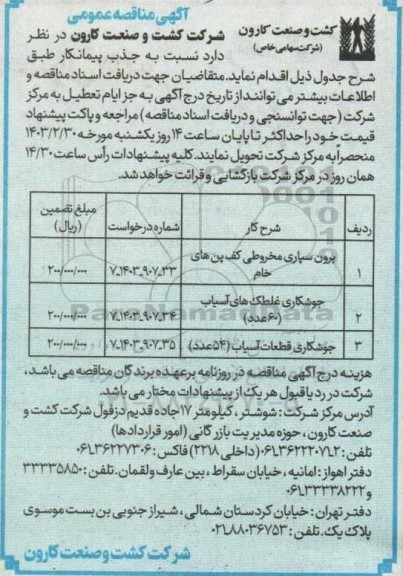 آگهی مناقصه عمومی
کشت و صنعت کارون
(شرکت سهامی خاص)
شرکت کشت و صنعت کارون در نظر
دارد نسبت به جذب پیمانکار طبق
شرح جدول ذیل اقدام نماید. متقاضیان جهت دریافت اسناد مناقصه و
اطلاعات بیشتر می توانند از تاریخ درج آگهی به جز ایام تعطیل به مرکز
شرکت (جهت توانسنجی و دریافت اسناد مناقصه) مراجعه و پاکت پیشنهاد
قیمت خود را حداکثر تا پایان ساعت ۱۴ روز یکشنبه مورخه ۱۴۰۳/۲/۳۰
منحصراً به مرکز شرکت تحویل نمایند. کلیه پیشنهادات رأس ساعت ۱۴/۳۰
همان روز در مرکز شرکت بازگشایی و قرائت خواهد شد.
ردیف شرح کار شماره درخواست مبلغ تضمین (ریال)
۱ برون سپاری مخروطی کف پن های خام ۷_۱۴۰۳_۹۰۷_۳۳ ۲۰۰/۰۰۰/۰۰۰
۲ جوشکاری غلطک های آسیاب (۶۰عدد) ۷_۱۴۰۳_۹۰۷_۳۴ ۲۰۰/۰۰۰/۰۰۰
۳ جوشکاری قطعات آسیاب (۵۴عدد) ۷_۱۴۰۳_۹۰۷_۳۵ ۲۰۰/۰۰۰/۰۰۰
هزینه درج آگهی مناقصه در روزنامه برعهده برندگان مناقصه می باشد،
شرکت در رد یا قبول هر یک از پیشنهادات مختار می باشد.
آدرس مرکز شرکت: شوشتر، کیلومتر ۱۷ جاده قدیم دزفول شرکت کشت و
صنعت کارون، حوزه مدیریت بازرگانی (امور قراردادها)
تلفن: ۲_۰۶۱۳۶۲۲۲۰۷۱ (داخلی ۲۲۱۸) فاکس: ۰۶۱۳۶۲۲۷۳۰۶
دفتر اهواز: امانیه، خیابان سقراط، بین عارف و لقمان. تلفن: ۳۳۳۳۵۸۵۰
و ۰۶۱۳۳۳۳۸۲۲۲
دفتر تهران: خیابان کردستان شمالی، شیراز جنوبی بن بست موسوی
پلاک یک. تلفن: ۰۲۱۸۸۰۳۶۷۵۳
شرکت کشت و صنعت کارون